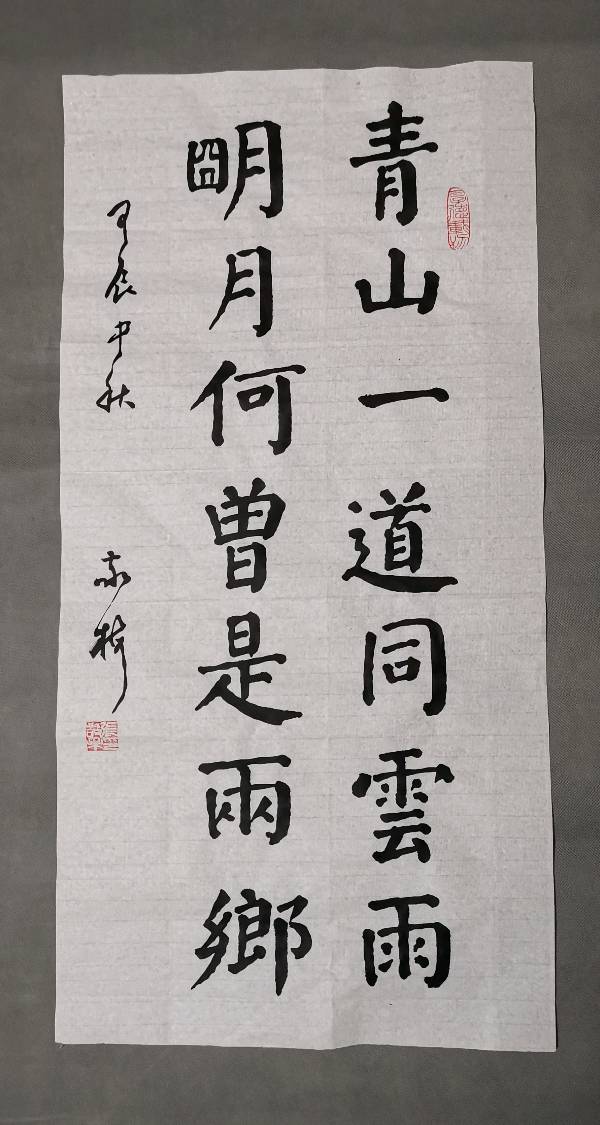 青山一道同雲雨
明月何曽是兩鄉
甲辰中秋